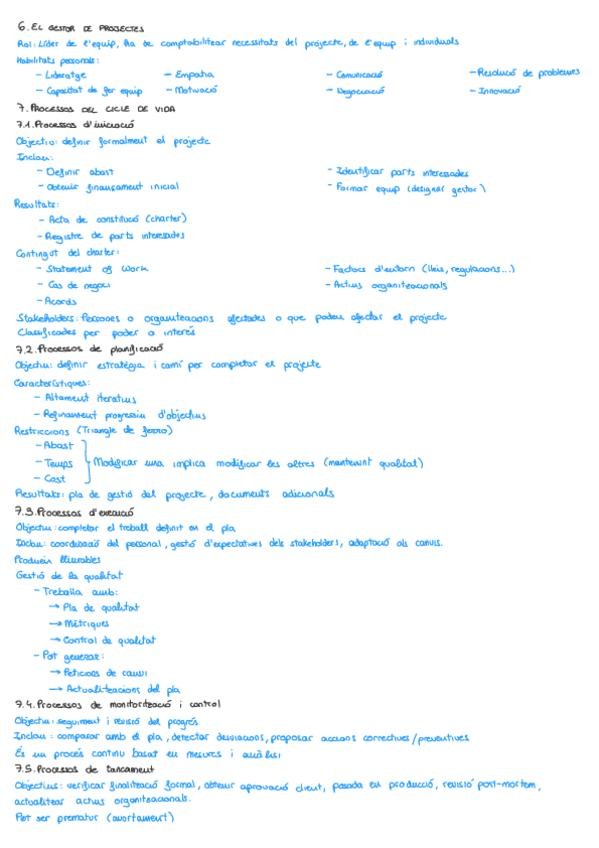 6. EL GESTOR DE PROJECTES
Rol: Líder de l'equip, ha de comptabilitzar necessitats del projecte, de l'equip i individuals
Habilitats personals:
- Lideratge - Empatia - Comunicació - Resolució de problemes
- Capacitat de fer equip - Motivació - Negociació - Innovació
7. PROCESSOS DEL CICLE DE VIDA
7.1. Processos d'iniciació
Objectiu: definir formalment el projecte
Inclou:
- Definir abast - Identificar parts interessades
- Obtenir finançament inicial - Formar equip (designar gestor)
Resultats:
- Acta de constitució (charter)
- Registre de parts interessades
Contingut del charter:
- Statement of Work - Factors d'entorn (lleis, regulacions...)
- Cas de negoci - Actius organitzacionals
- Acords
Stakeholders: Persones o organitzacions afectades o que poden afectar el projecte
Classificades per poder o interès
7.2. Processos de planificació
Objectiu: definir estratègia i camí per completar el projecte
Característiques:
- Altament iteratius
- Refinament progressiu d'objectius
Restriccions (Triangle de ferro)
- Abast
- Temps Modificar una implica modificar les altres (mantenint qualitat)
- Cost
Resultats: pla de gestió del projecte, documents addicionals
7.3. Processos d'execució
Objectiu: completar el treball definit en el pla
Inclou: coordinació del personal, gestió d'expectatives dels stakeholders, adaptació als canvis.
Produeix lliurables
Gestió de la qualitat
- Treballa amb:
→ Pla de qualitat
→ Mètriques
→ Control de qualitat
- Pot generar:
→ Peticions de canvi
→ Actualitzacions del pla
7.4. Processos de monitorització i control
Objectiu: seguiment i revisió del progrés
Inclou: comparar amb el pla, detectar desviacions, proposar accions correctives/preventives
És un procés continu basat en mesures i anàlisi
7.5. Processos de tancament
Objectius: verificar finalització formal, obtenir aprovació client, passada en producció, revisió post-mortem,
actualitzar actius organitzacionals.
Pot ser prematur (avortament)